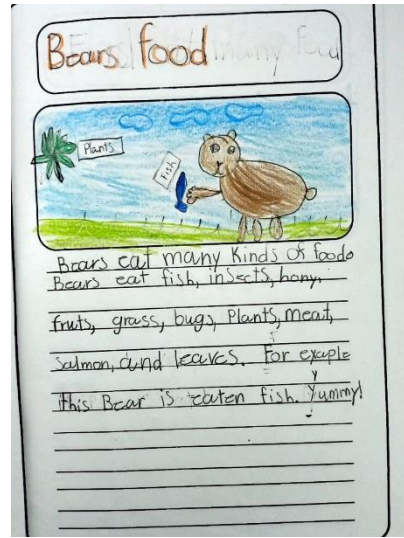 Bears food
Plants
Fish
Bears eat many Kinds of food.
Bears eat fish, insects, hony,
fruts, grass, bugs, Plants, meat,
salmon, and leaves. For exaple
this Bear is eaten fish. Yummy!